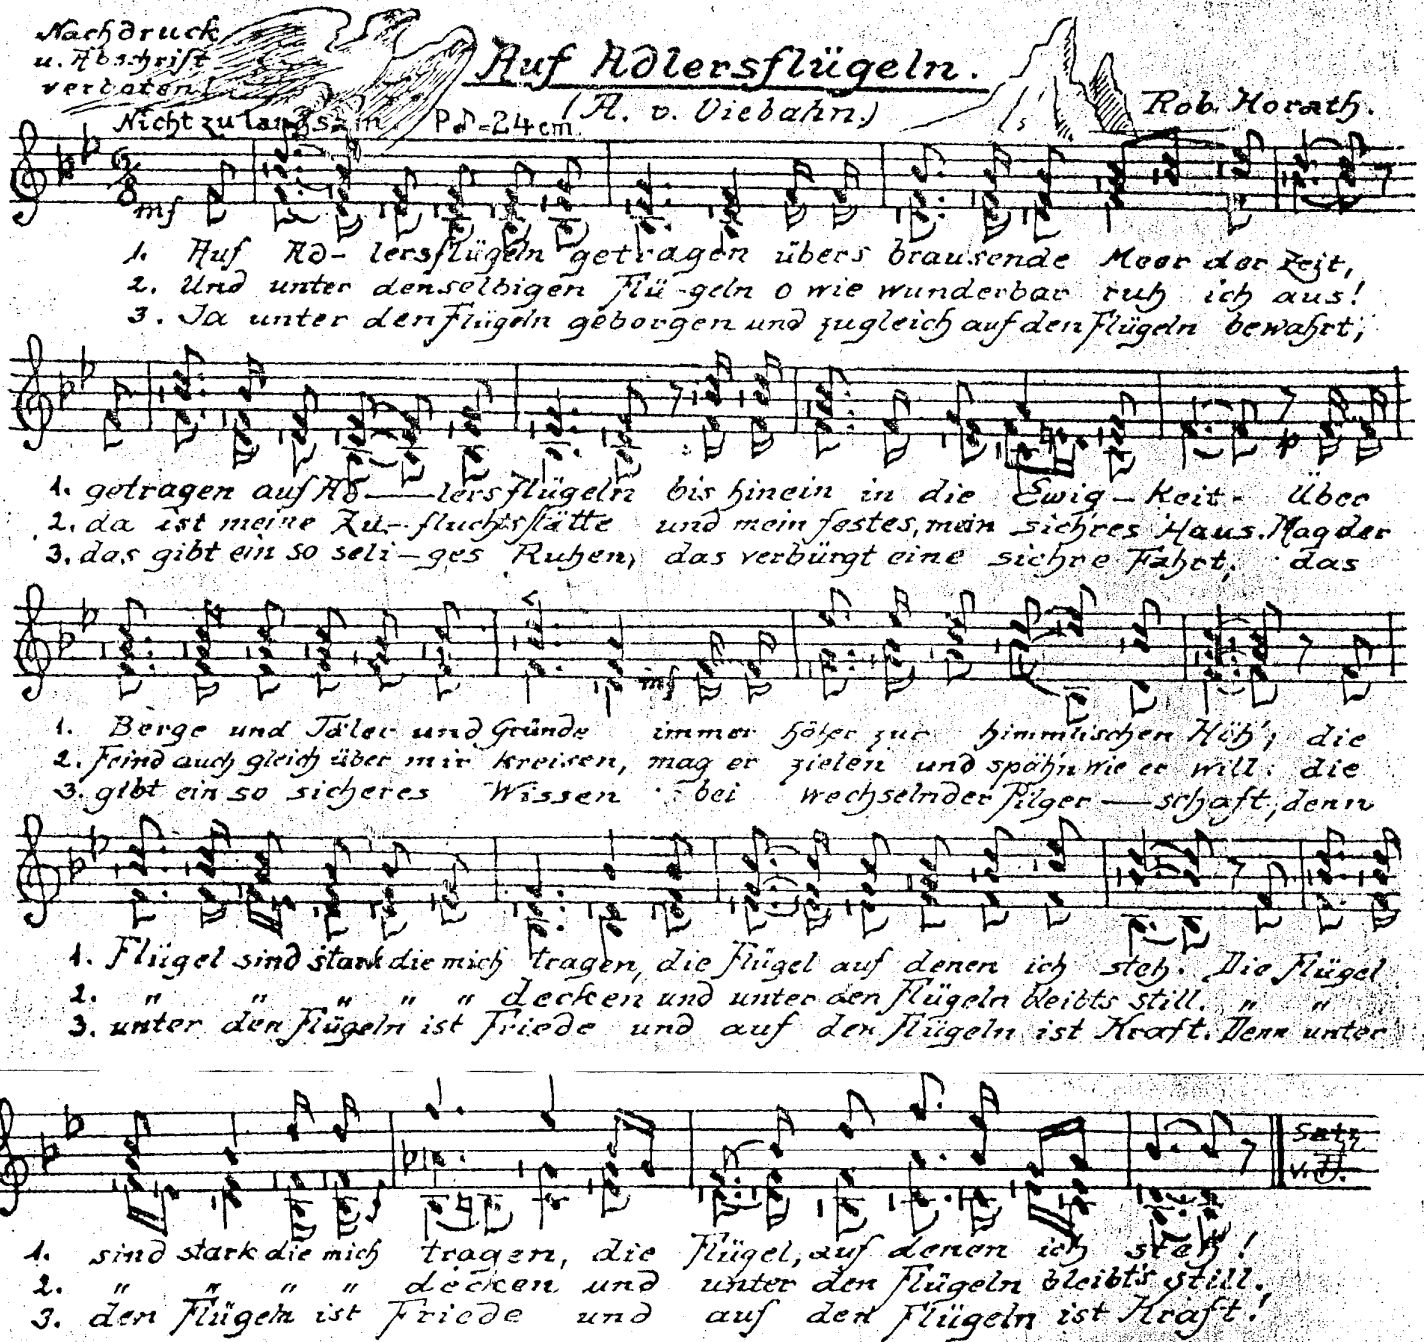 Nachdruck
u. Abschrift
verboten!
Auf Adlersflügeln.
(A. v. Viebahn.)
Rob. Horath.
Nicht zu langsam. P♪=24cm.
6/8
mf
1. Auf Ad- lersflügeln getragen übers brausende Meer der Zeit,
2. Und unter denselbigen Flü-geln o wie wunderbar ruh ich aus!
3. Ja unter den Flügeln geborgen und zugleich auf den Flügeln bewahrt,
p
1. getragen auf Ad——lersflügeln bis hinein in die Ewig-keit- Über
2. da ist meine Zu-fluchtsstätte und mein festes, mein sichres Haus. Mag der
3. das gibt ein so seli-ges Ruhen, das verbürgt eine sichre Fahrt, das
mf
1. Berge und Täler und Gründe immer höher zur himmlischen Höh', die
2. Feind auch gleich über mir kreisen, mag er zielen und spähn wie er will: die
3. gibt ein so sicheres Wissen bei wechselnder Pilger—schaft, denn
1. Flügel sind stark die mich tragen, die Flügel auf denen ich steh. Die Flügel
2. " " " " " decken und unter den Flügeln bleibts still. " "
3. unter den Flügeln ist Friede und auf den Flügeln ist Kraft. Denn unter
Satz
v. J.
1. sind stark die mich tragen, die Flügel, auf denen ich steh!
2. " " " " decken und unter den Flügeln bleibt's still.
3. den Flügeln ist Friede und auf den Flügeln ist Kraft!